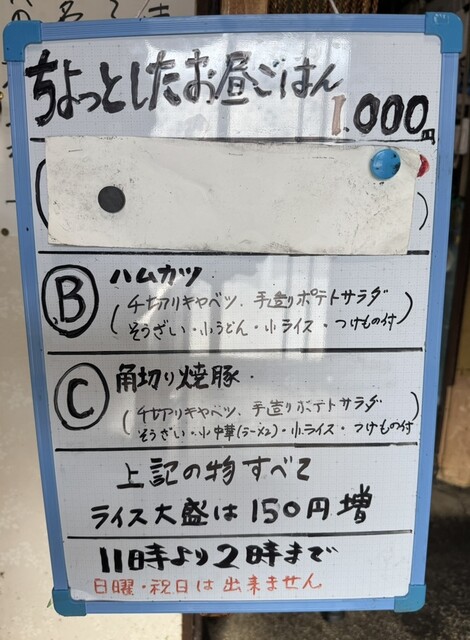 ちょっとしたお昼ごはん
1.000円
B ハムカツ
(千切りキャベツ、手造りポテトサラダ
そうざい・小うどん・小ライス・つけもの付)
C 角切り焼豚
(千切りキャベツ、手造りポテトサラダ
そうざい・小中華(ラーメン)・小ライス・つけもの付)
上記の物すべて
ライス大盛は150円増
11時より2時まで
日曜・祝日は出来ません